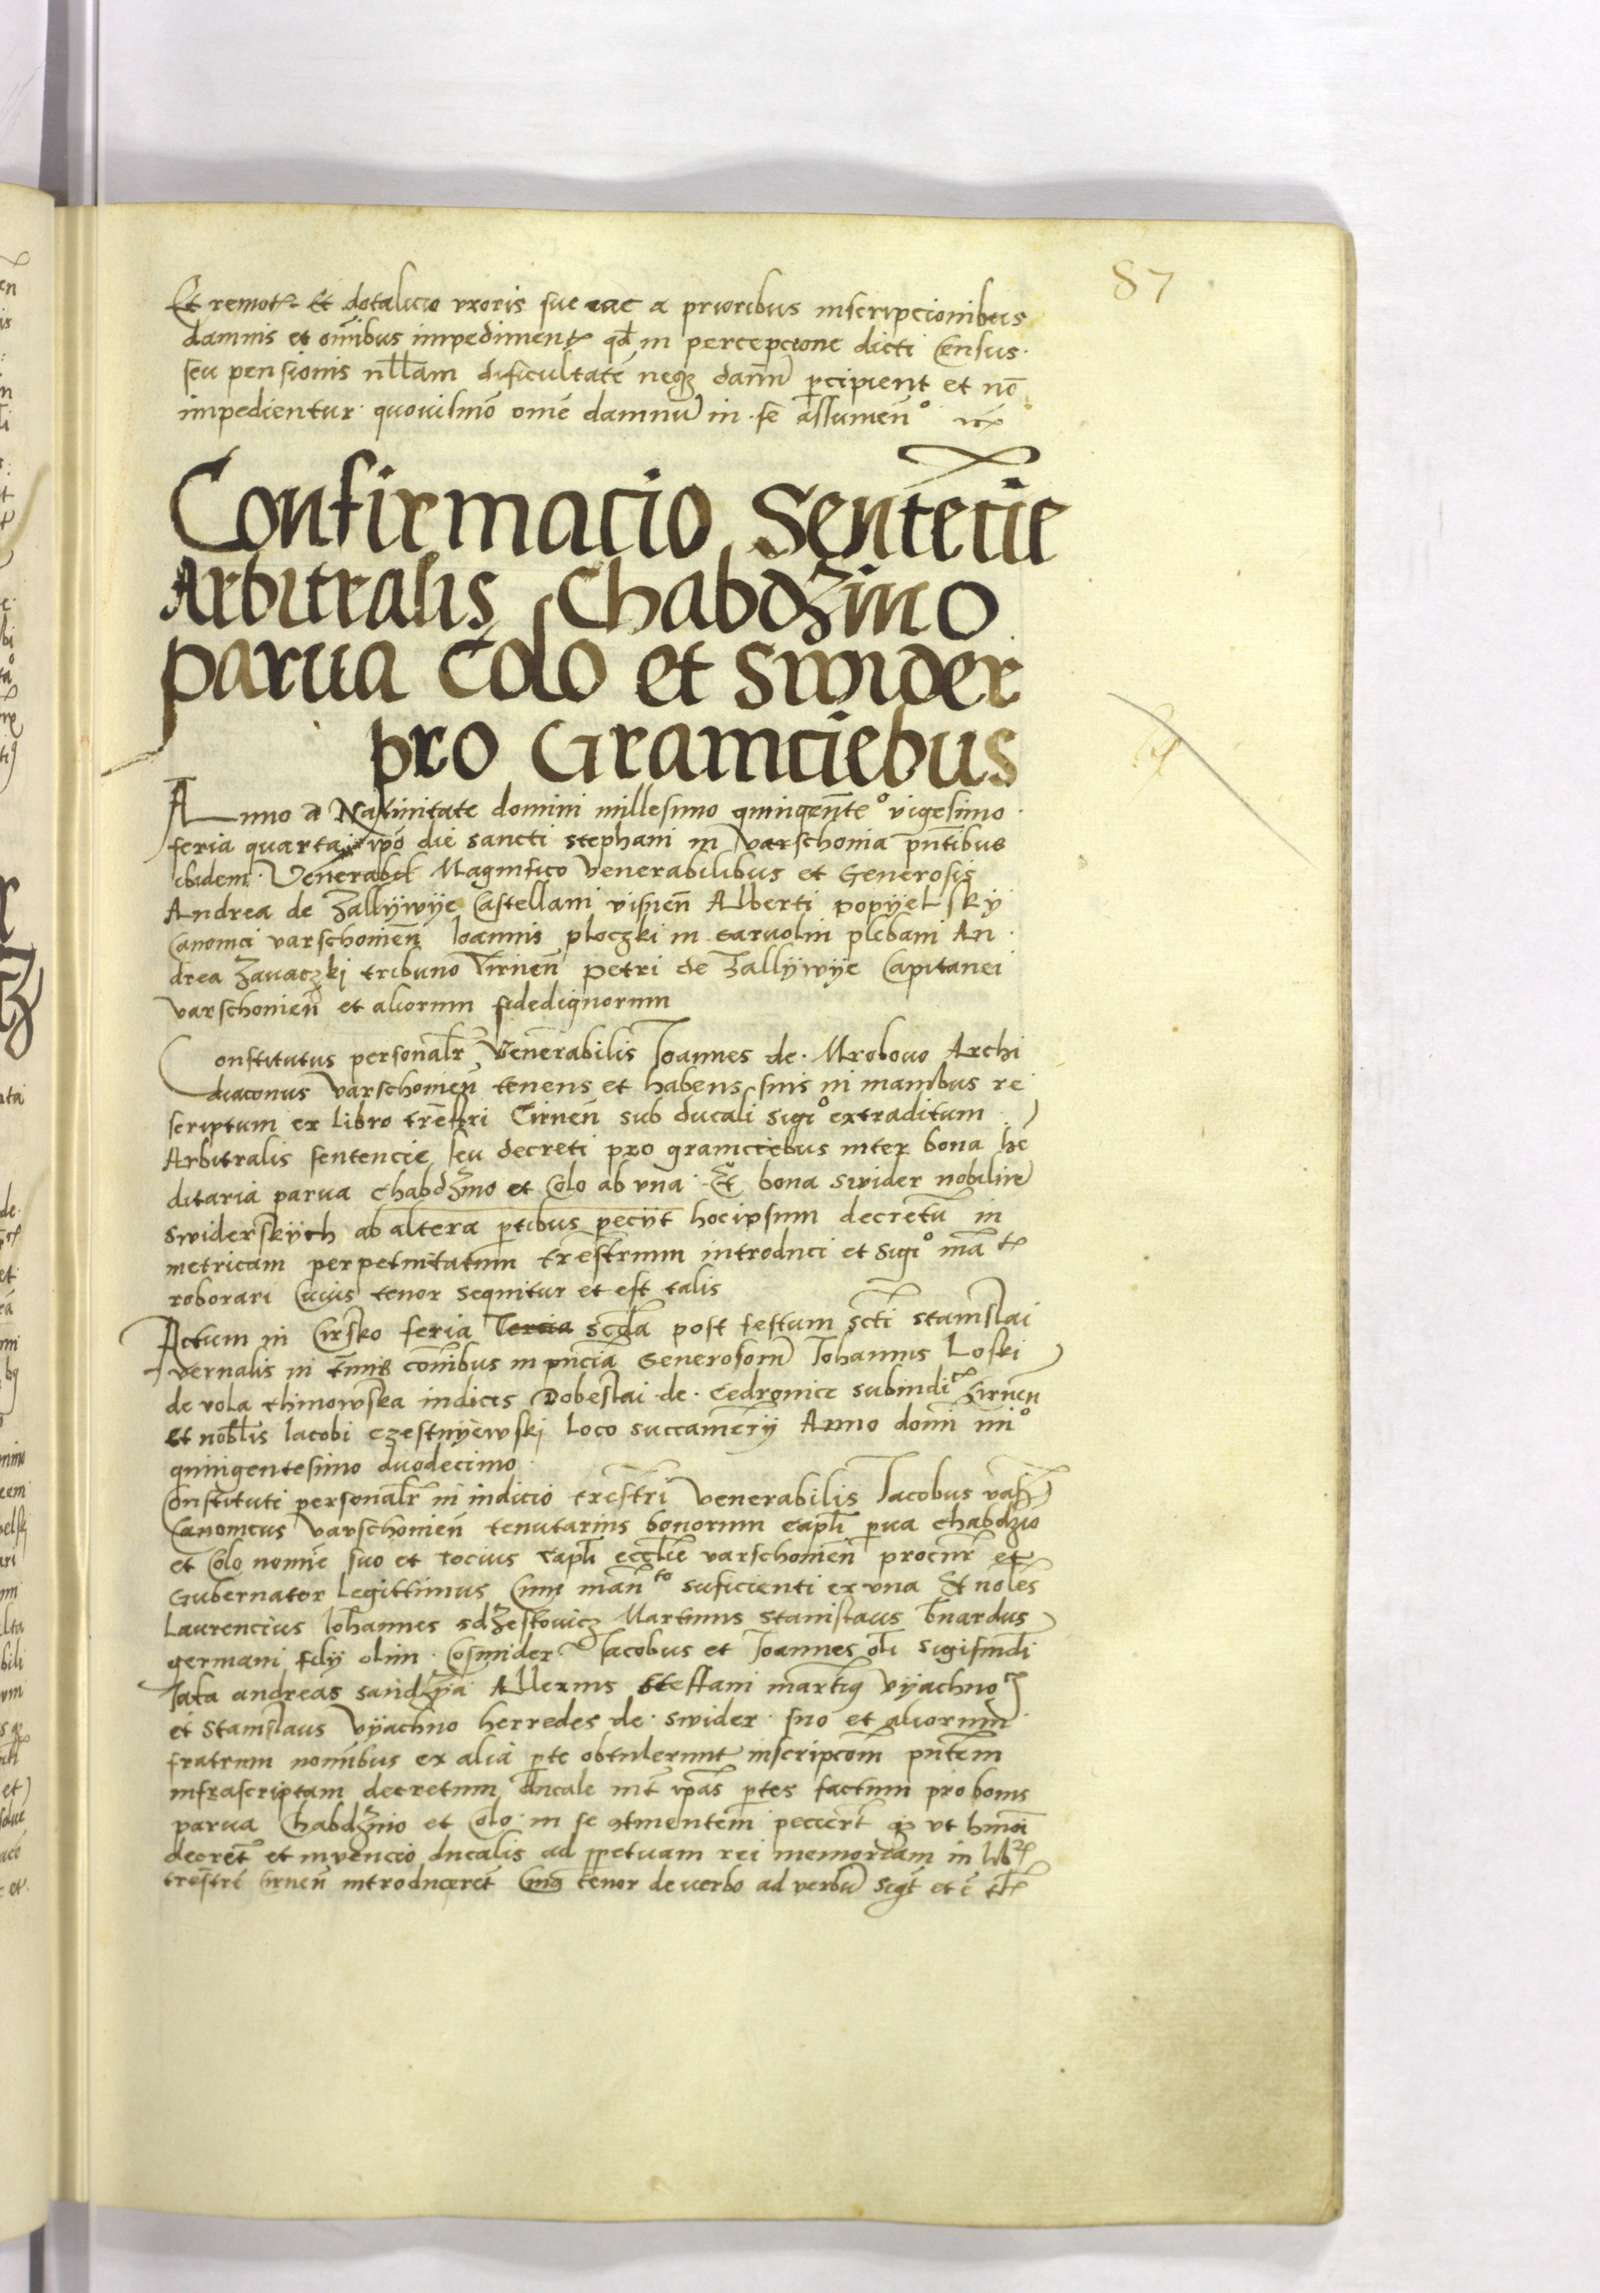 87
Et remot Et dotalicio vxoris sue ac a prioribus inscripcionibus
damnis et oībus impediment qd in percepcione dicti Census
seu pensionis nllam dificultatē neqz damnū pcipient et nō
impedientur quouismō omē damnū in se assumen
Confirmacio Sentēcie
Arbitralis Chabdzino
parua Colo et Swider
pro Graniciebus
Anno a Natiuitate domini millesimo quingentē° vigesimo
feria quarta ipō die sancti stephani in varschouia pntibus
ibidem Venerabil Magnifico Venerabilibus et Generosis
Andrea de Zallijwije Castellani visnen Alberti popijelsky
Canonici varschouien Ioannis ploczki in Garuolin plebani An
drea Zauaczki tribuno Cirnen petri de Zallijwije Capitanei
varschouien et aliorum fidedignorum
Constitutus personalr Venerabilis Joannes de Mrokouo Archi
diaconus varschouien tenens et habens suis in manibus re
scriptum ex libro trēstri Cirnen sub ducali sigi° extraditum
Arbitralis sentencie seu decreti pro graniciebus inter bona he
ditaria parua Chabdzino et Colo ab vna Et bona Swider nobiliū
Swiderskijch ab altera ptibus pecijt hocipsum decretū in
metricam perpetuitatum trēstrium introduci et sigi° ma
roborari Cuius tenor sequitur et est talis
Actum in Cirsko feria Tercia scda post festum scti stanislai
vernalis in tmīs cōībus in pncia Generosorū Johannis Loski
de vola chinowska iudicis Dobeslai de Cedronice subiudic Zirnen
et nobllis Iacobi czestnijewski loco succamerij Anno domi mi°
quingentesimo duodecimo
Constituti personalr in iudicio trestri Venerabilis Jacobus
Canonicus varschouien tenutarius bonorum capli pua Chabdzino
et Colo nomīe suo et tocius capli ecclie varschouien procur et
Gubernator legittimus Cum man to suficienti ex vna Et noles
Laurencius Iohannes sdzestouicz Martinus stanislaus bnardus
germani filij olim Cosmider Jacobus et Joannes oli sigismdi
Jata andreas sandzia Allexius steffani martinus vijachno
et Stanislaus vijachno herredes de swider suo et aliorum
fratrum nomībus ex alia pte obtulerunt inscripcōm pntem
infrascriptam decretum ducale int ipas ptes factum pro bonis
parua Chabdzino et Colo in se 9tinentem peccert qz vt hmōi
decret et inuencio ducalis ad ppetuam rei memoriam in lib
trestri Cirnen introduceret Cuius tenor de verbo ad verbū seqt et ē tlis